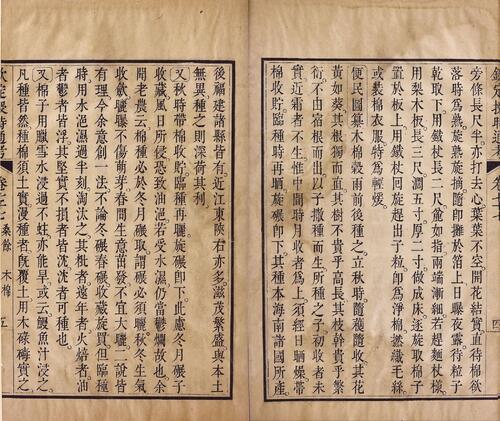 旁條長尺半亦打去心葉葉不空開花結實直待棉欲
落時為熟旋熟旋摘隨即攤於箔上日曝夜露待粒子
乾取下用鐵杖長二尺麄如指兩端漸細若趕麵杖樣
用梨木板長三尺濶五寸厚二寸做成床逐旋取棉子
置於板上用鐵杖回旋趕出子粒卽為淨棉撚織毛絲
或裝棉衣服特為輕煖
便民圖纂木棉穀雨前後種之立秋時隨穫隨收其花
黃如葵其根獨而直其樹不貴乎高長其枝幹貴乎繁
衍不由宿根而出以子撒種而生所種之子初收者未
實近霜者不生惟中間時月收者為上須經日晒燥帶
棉收貯臨種時再晒旋碾卽下其種本海南諸國所產
後福建諸縣皆有近江東陝右亦多滋茂繁盛與本土
無異種之則深荷其利
又秋時帶棉收貯臨種再曬旋碾卽下此慮冬月碾子
收藏風日所侵恐致油浥若受水濕仍當鬱爛故也余
聞老農云棉種必於冬月碾取謂碾必須曬秋冬生氣
收歛曬曝不傷萌芽春間生意苗發不宜大曬二說皆
有理今余意創一法不論冬碾春碾收藏旋買但臨種
時用水浥濕過半刻淘汰之其秕者遠年者火焙者油
者鬱者皆浮其堅實不損者皆沈沈者可種也
又棉子用臘雪水浸過不蛀亦能旱或云鰻魚汁浸之
凡種皆然種棉須土實漫種者既覆土用木碌碡實之
卷七十七
桑餘
木棉
五